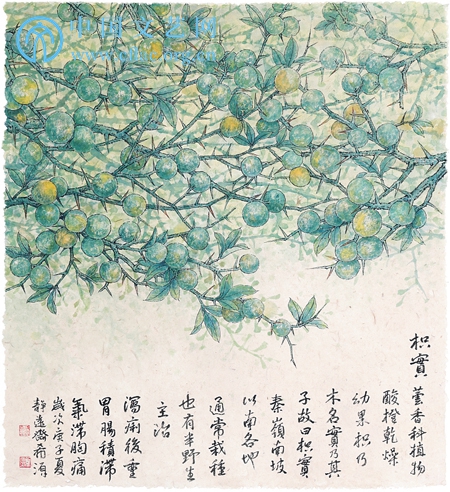 中国文艺网
枳實 芸香科植物
酸橙乾燥
幼果枳乃
木名實乃其
子故曰枳實
秦嶺南坡
以南各地
通常栽種
也有半野生
主治
瀉痢後重
胃腸積滯
氣滯胸痛
歲次庚子夏
靜遠齋